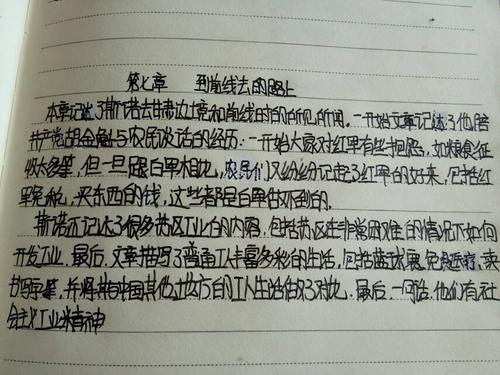 第七章 到前线去的路上
本章记述了斯诺去甘肃边境和前线时的所见所闻。一开始文章记述了他陪
共产党胡金魁与农民谈话的经历。一开始大家对红军有些牢骚,如粮食征
收太多等,但一旦跟白军相比,农民们又纷纷记起了红军的好来,包括红
军免税,买东西给钱,这些都是白军做不到的。
斯诺还记述了很多苏区工业的内容,包括苏区在非常困难的情况下如何
开发工业。最后,文章描写了普通工人丰富多彩的生活,包括篮球赛,免费医疗,读
书写字等,并将其与中国其他地方的工人生活做了对比,最后一句话:他们有社
会主义工业精神